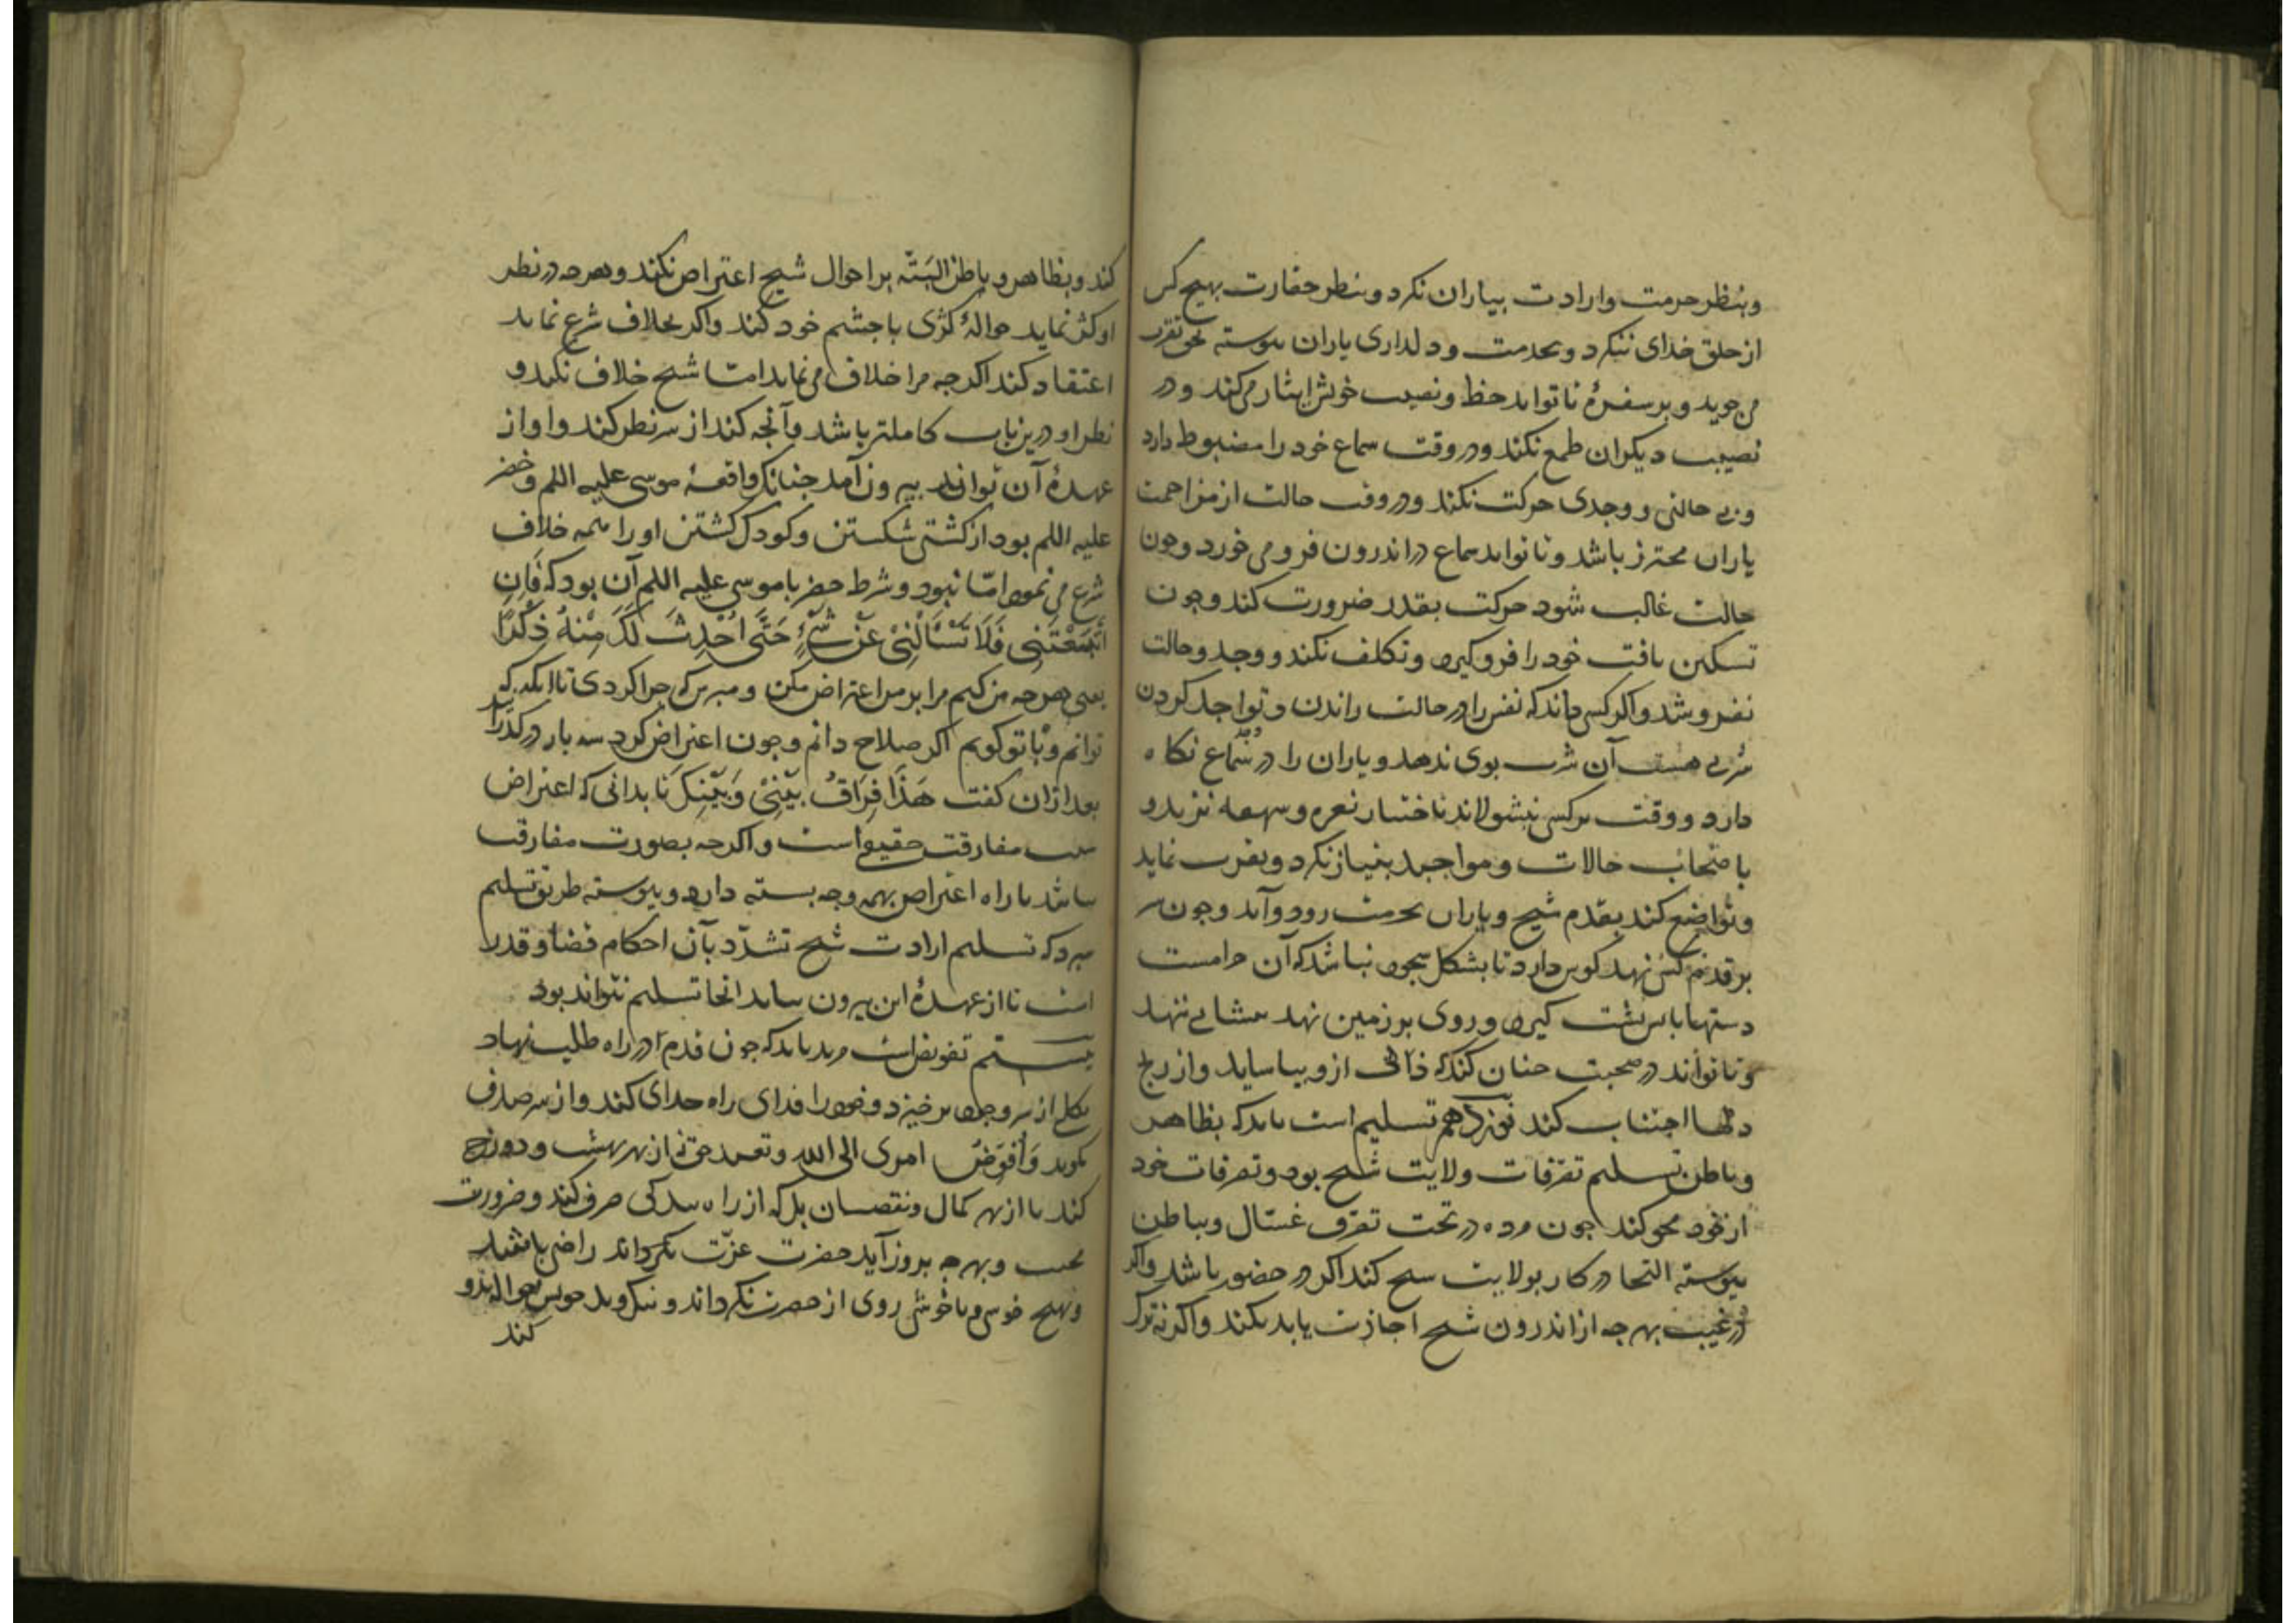 وبنظر حرمت وارادت بیاران نکرد وبنظر حقارت بهیچ کس
از خلق خدای ننکرد وبخدمت ودلداری یاران پیوسته بحق تقرب
می جوید وبر سفره تا تواند حظ ونصیب خویش ایثار می کند ودر
نصیب دیکران طمع نکند ودر وقت سماع خود را مضبوط دارد
وبی حالتی ووجدی حرکت نکند ودر وقت حالت از مزاحمت
یاران محترز باشد وتا تواند سماع در اندرون فرو می خورد وجون
حالت غالب شود حرکت بقدر ضرورت کند وجون
تسکین یافت خود را فرو کیرد وتکلف نکند ووجد وحالت
نفروشد واکر کسی داند که نفس را در حالت راندن وتواجد کردن
شربی هست آن شرب بوی ندهد ویاران را در سماع نکاه
دارد ووقت بر کس نبشولاند باختیار نعره و نزند و
باصحاب حالات ومواجید بنیاز نکرد وتقرب نماید
وتواضع کند بقدم شیخ ویاران بحرمت رود وآید وجون سر
بر قدم کسی نهد کوش دارد تا بشکل سجود نباشد که آن حرامست
دستها باپس پشت کیرد وروی بر زمین نهد پیشانی ننهد
وتا تواند در صحبت جنان کند که ازو بیاساید واز رنج
دلها اجتناب کند نوزدهم تسلیم است باید که بظاهر
وباطن تسلیم تصرفات ولایت شیخ بود وتصرفات خود
از خود محو کند جون مرده در تحت تصرف غسال وبباطن
پیوسته التجا در کار بولایت شیخ کند اکر در حضور باشد واکر
در غیبت بهرجه از اندرون شیخ اجازت یابد بکند واکرنه ترک
کند وبظاهر وباطن البَتّه بر احوال شیخ اعتراض نکند وهرجه در نظر
او کژ نماید حوالهٔ کژی باجشم خود کند واکر بخلاف شرع نماید
اعتقاد کند اکرجه مرا خلاف می نماید امّا شیخ خلاف نکند و
نظر او درین باب کاملتر باشد وآنجه کند از سر نظر کند واو از
عهدهٔ آن تواند بیرون آمد جنانک واقعهٔ موسی علیه اللم وخضر
علیه اللم بود از کشتی شکستن وکودک کشتن او را همه خلاف
شرع می نمود امّا نبود وشرط خضر با موسی علیه اللم آن بود که فَاِن
اتَّبَعْتَنِی فَلَا تَسْأَلْنِیْ عَنْ شَیْءٍ حَتَّی اُحْدِثَ لَکَ مِنْهُ ذِکْرًا
یعنی هرجه من کنم مرا بر من اعتراض مکن ومپرس که جرا کردی تا آنکه که
توانم وبا تو کویم اکر صلاح دانم وجون اعتراض کرد سه بار درکذرا
بعد ازان کفت هَذَا فِرَاقُ بَیْنِیْ وَبَیْنِکَ تا بدانی که اعتراض
سبب مفارقت حقیقی است واکرجه بصورت مفارقت
نباشد تا راه اعتراض بهمه وجه بسته دارد وپیوسته طریق تسلیم
سپرد که تسلیم ارادت شیخ احکام قضا وقدر
است تا از عهدهٔ این بیرون نیاید آنجا تسلیم نتواند بود
بیستم تفویض است مرید باید که جون قدم در راه طلب نهاد
بکلی از سر وجود برخیزد وخود را فدای راه خدای کند واز سر صدق
بکوید وَاُفَوِّضُ امری الی الله وتعبد حق نه از بهر بهشت ودوزخ
کند یا از بهر کمال ونقصان بل که از راه بندکی صرف کند وضرورت
محبت وبهرجه بروز آید حضرت عزّت نکرداند راضی باشد
وبهیچ خوشی وناخوشی روی از حضرت نکرداند
کند